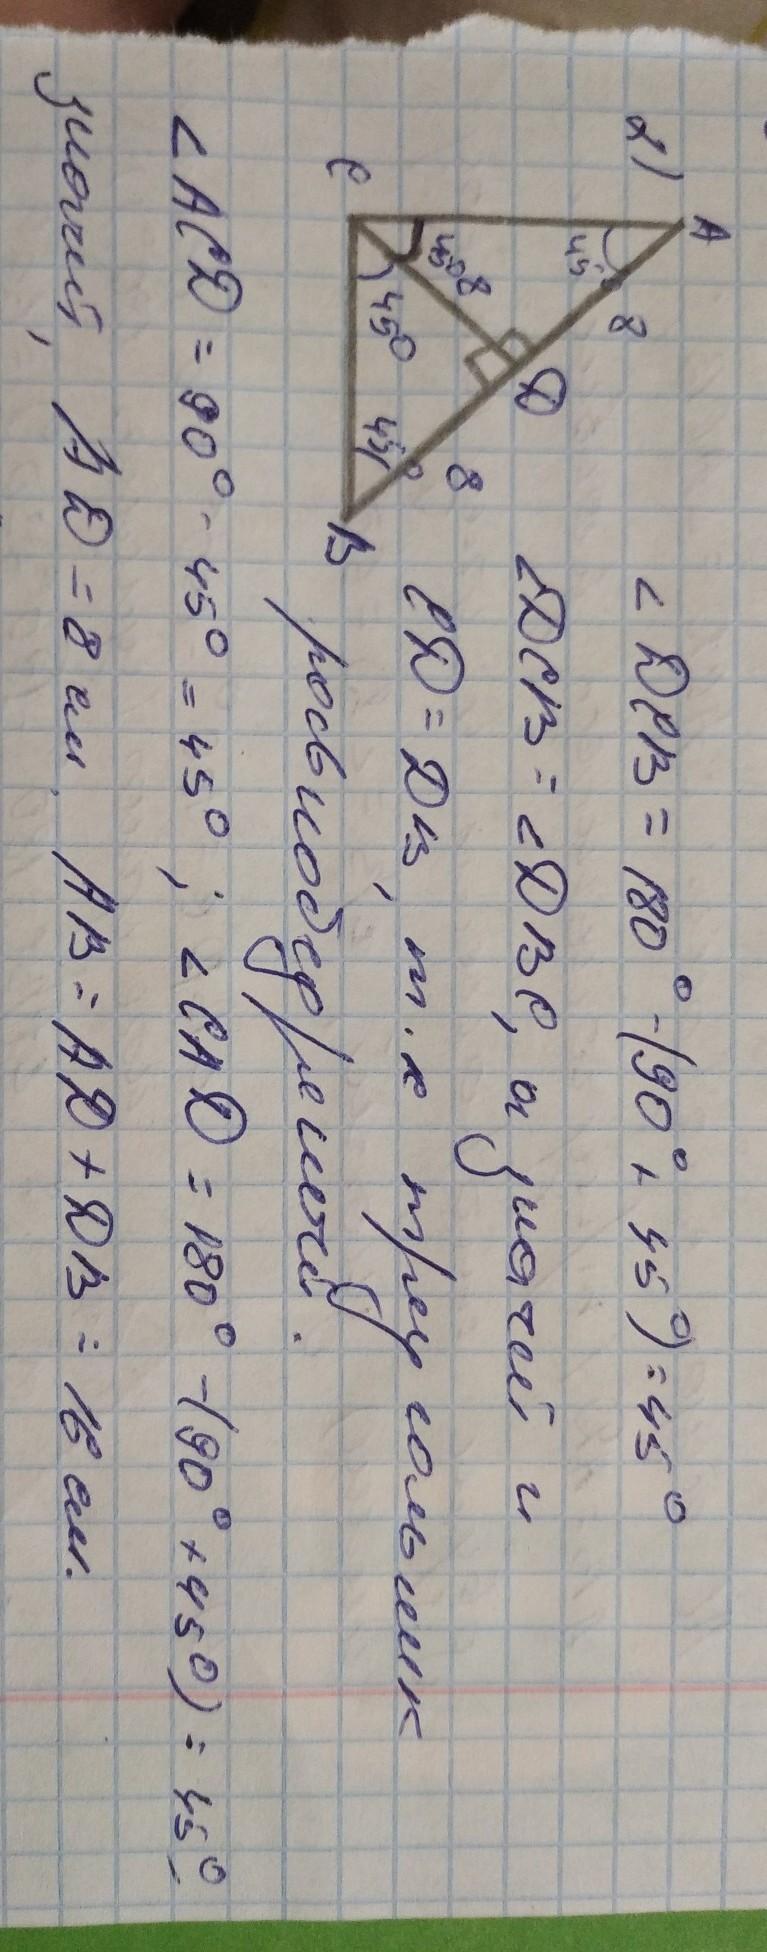 2)
A
45°
8
45°
8
D
C
45°
45°
8
B
∠DCB = 180° - (90° + 45°) = 45°
∠DCB = ∠DBC, а значит и
CD = DB, т.к треугольник
равнобедренный.
∠ACD = 90° - 45° = 45°; ∠CAD = 180° - (90° + 45°) = 45°,
значит, AD = 8 см, AB = AD + DB = 16 см.